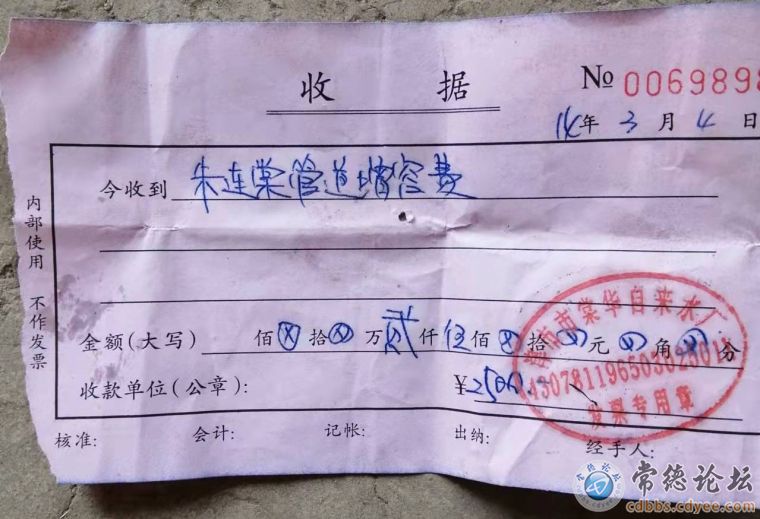 收 据
№ 0069898
14年3月4日
今收到 朱连棠管道增容费
内部使用 不作发票
金额(大写) 佰⊗拾⊗万贰仟伍佰⊗拾⊗元⊗角⊗分
收款单位(公章): ¥2500.
津市市棠华自来水厂
发票专用章
核准: 会计: 记帐: 出纳: 经手人:
常德论坛
cdbbs.cdyee.com